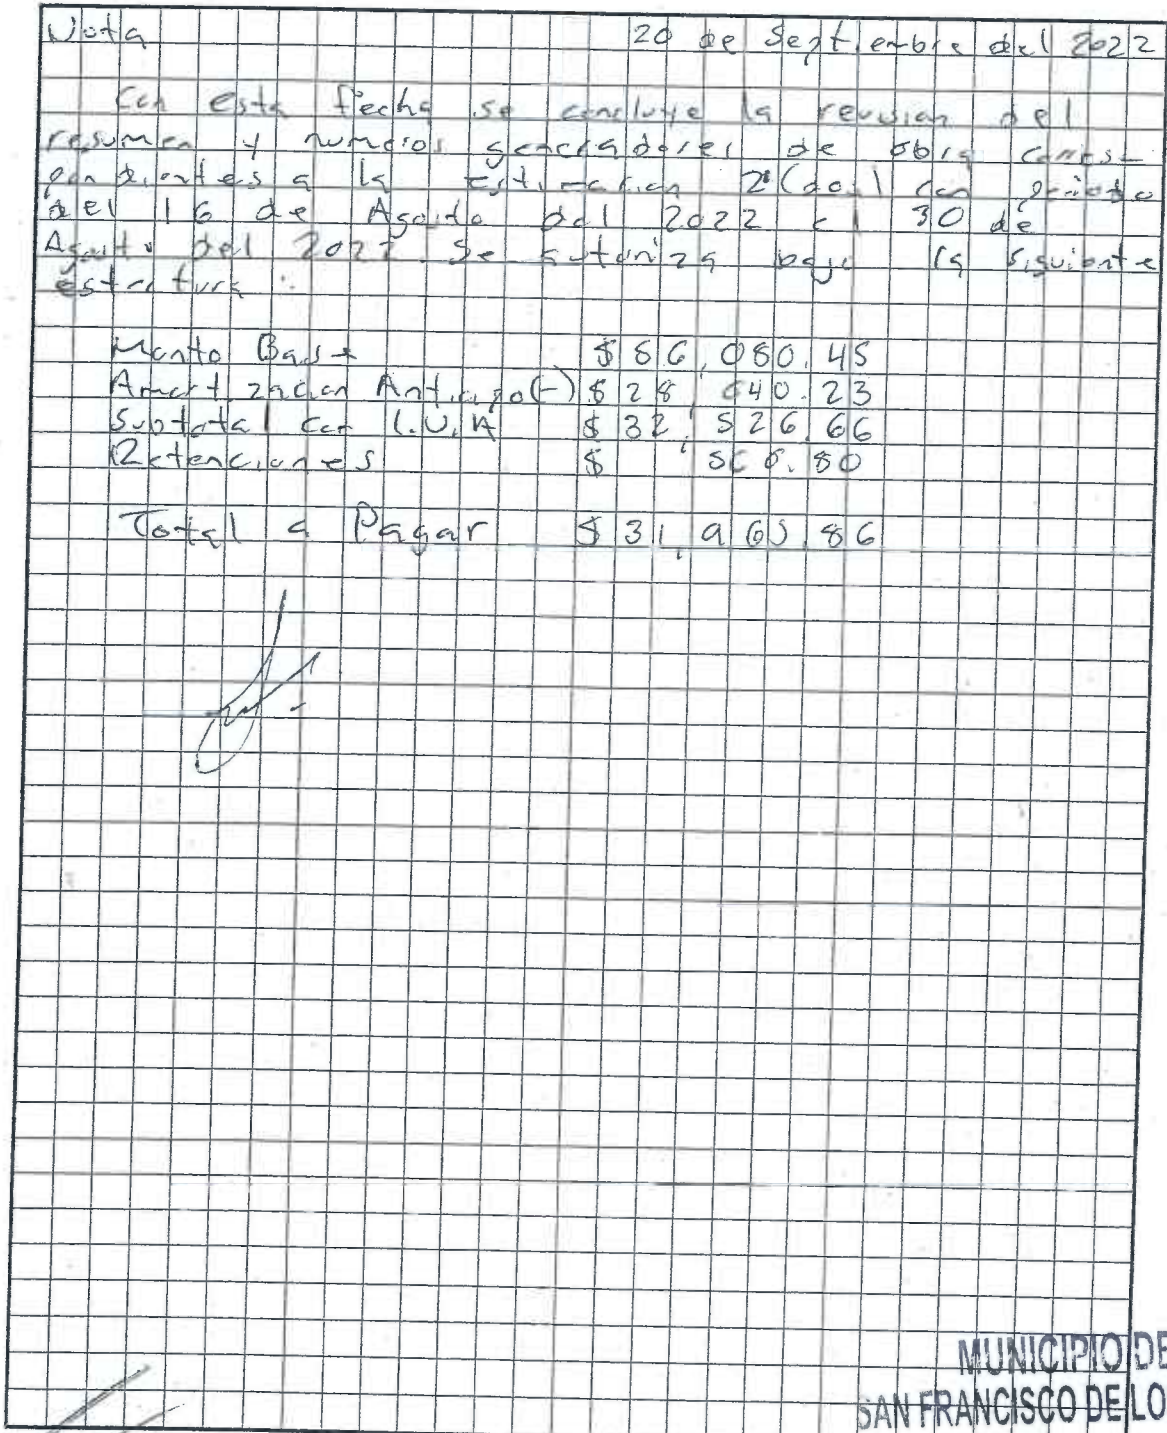 Nota 20 de Septiembre del 2022
Con esta fecha se concluye la revision del
resumen y numeros generadores de obra corres-
pondientes a la estimacion 2 (dos) con periodo
del 16 de Agosto del 2022 al 30 de
Agosto del 2022 se autoriza bajo la siguiente
estructura :
Monto Base $ 56,080.45
Amortizacion Anticipo (-) $ 28,040.23
Subtotal con I.V.A $ 32,526.66
Retenciones $ 560.80
Total a Pagar $ 31,965.86
MUNICIPIO DE
SAN FRANCISCO DE LO